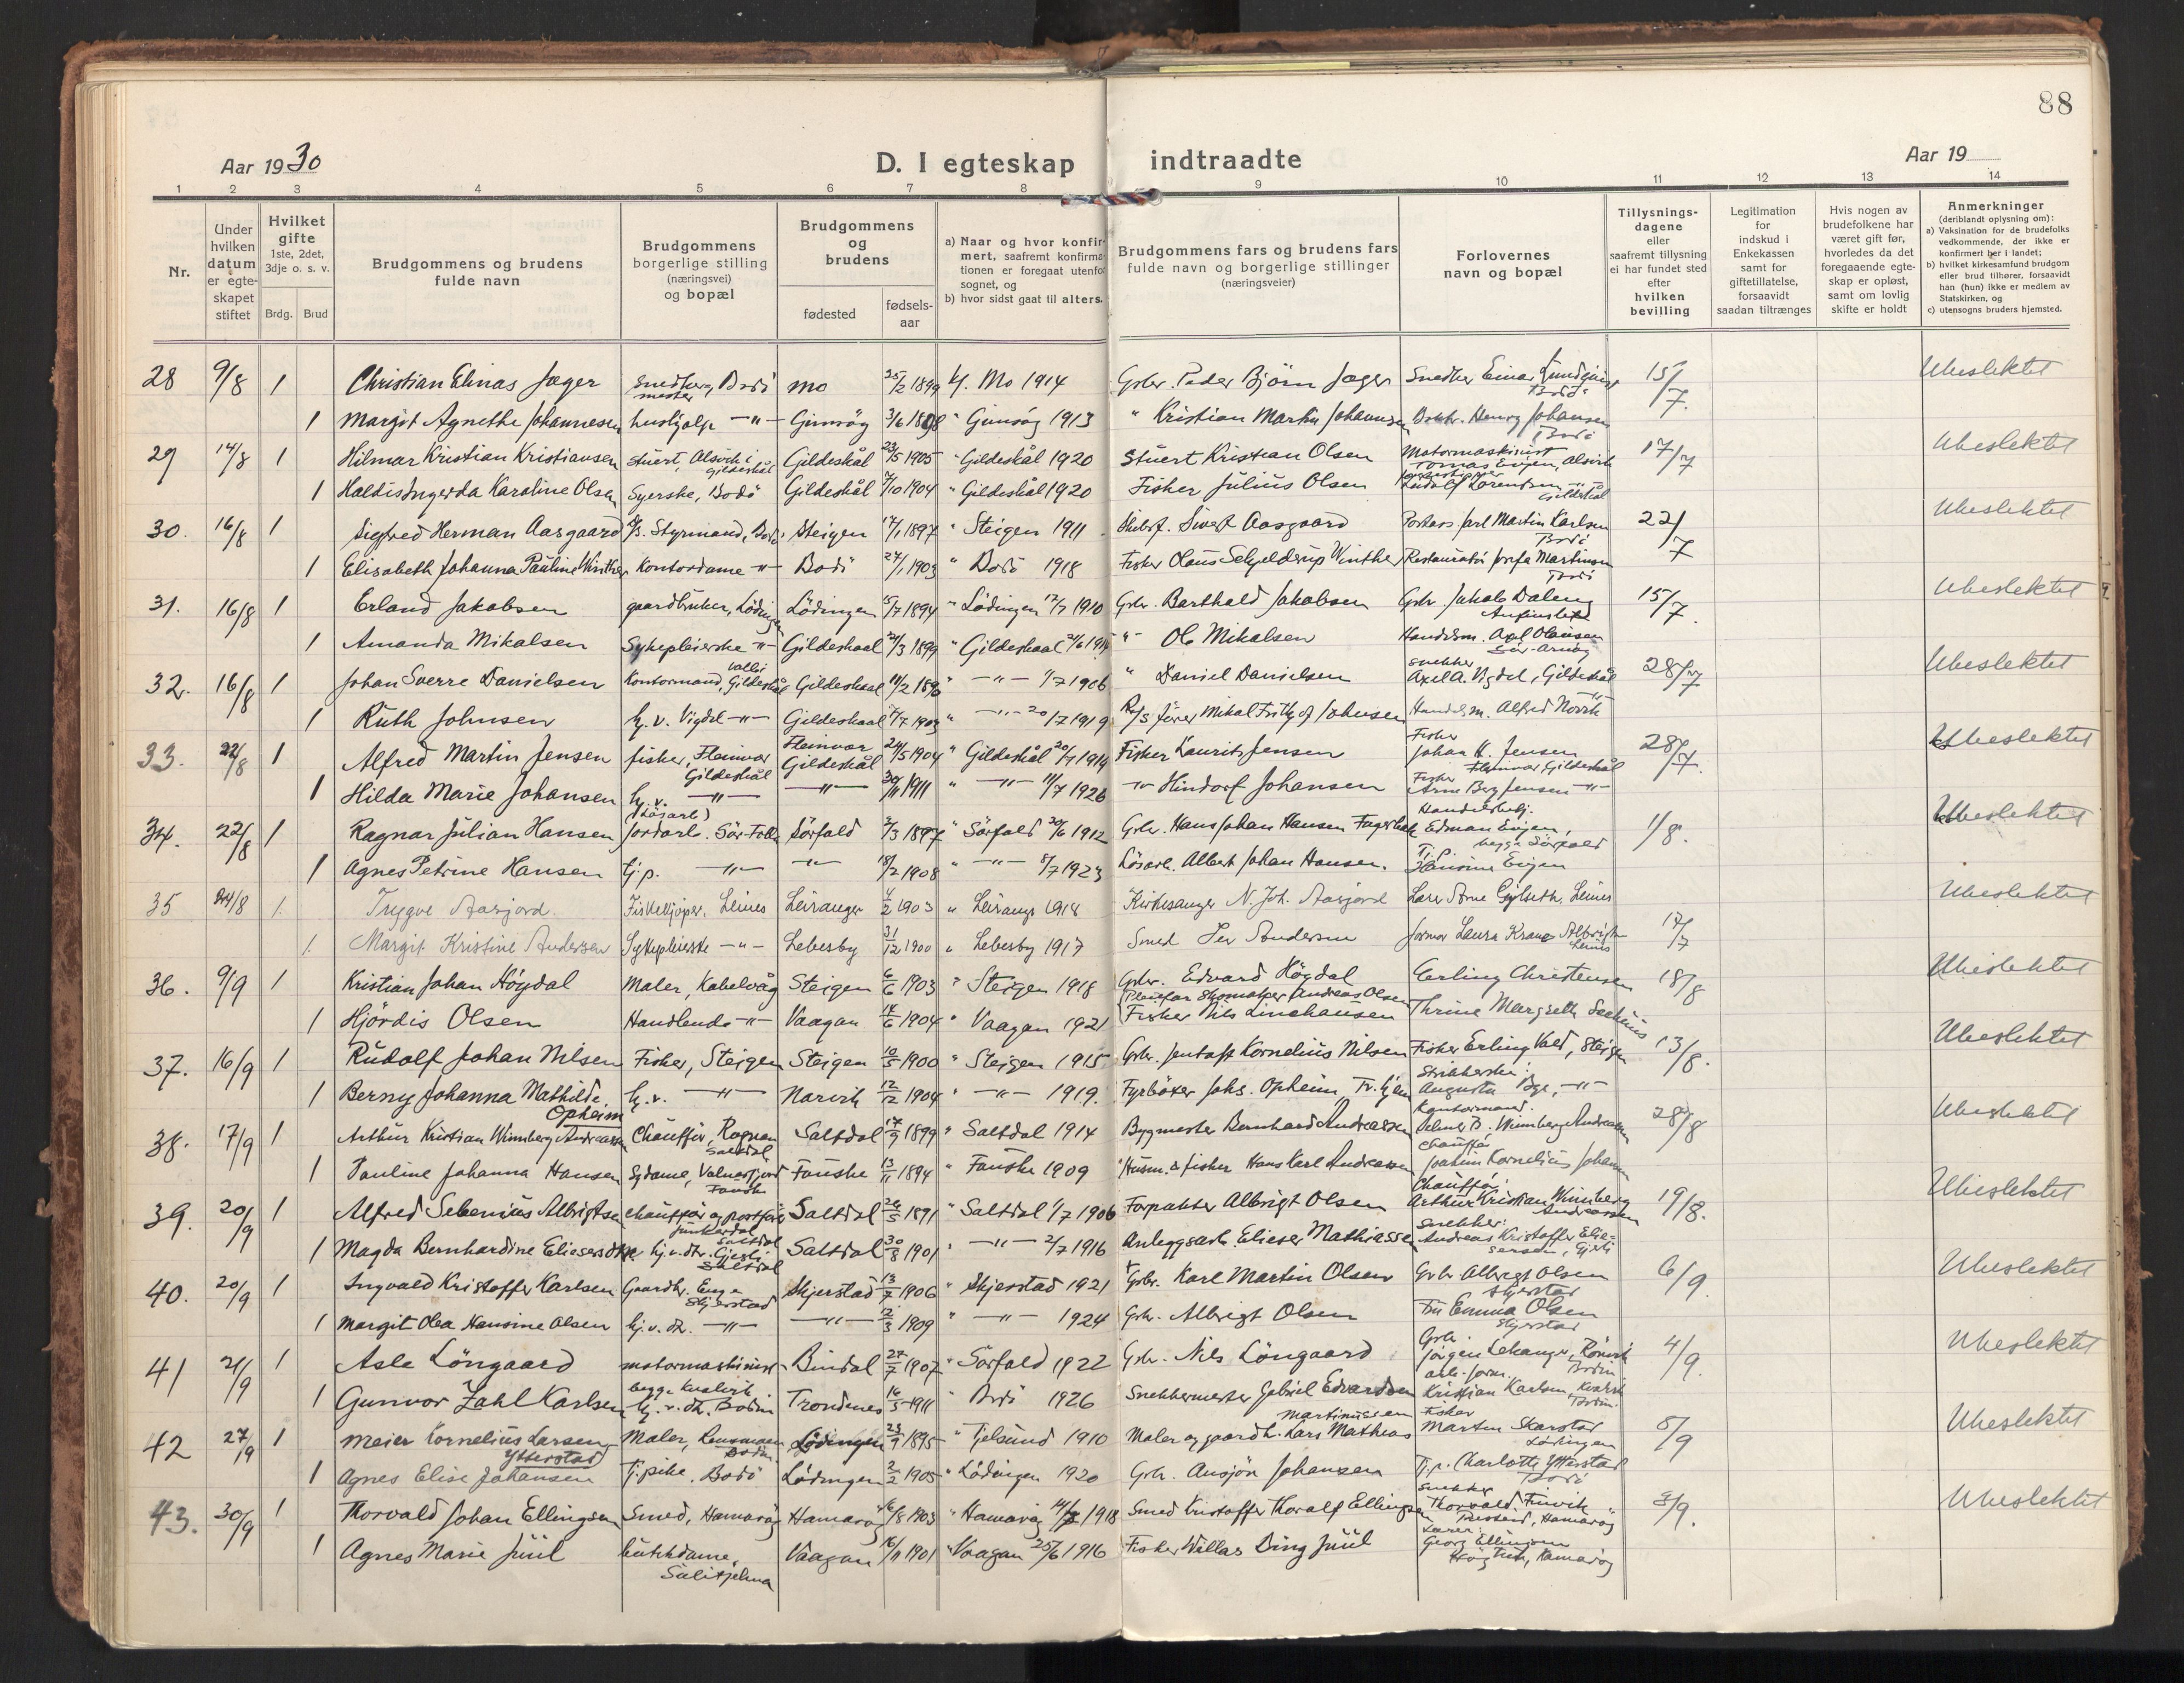 88
Aar 1930
D. I egteskap indtraadte
Aar 19
1 2 3 4 5 6 7 8 9 10 11 12 13 14
Nr.
Under hvilken datum er egteskapet stiftet
Hvilket gifte 1ste, 2det, 3dje o. s. v.
Brdg. Brud
Brudgommens og brudens fulde navn
Brudgommens borgerlige stilling (næringsvei) og bopæl
Brudgommens og brudens
fødested
fødsels-aar
a) Naar og hvor konfirmert, saafremt konfirmationen er foregaat utenfor sognet, og
b) hvor sidst gaat til alters.
Brudgommens fars og brudens fars fulde navn og borgerlige stillinger (næringsveier)
Forlovernes navn og bopæl
Tillysningsdagene eller saafremt tillysning ei har fundet sted efter hvilken bevilling
Legitimation for indskud i Enkekassen samt for giftetillatelse, forsaavidt saadan tiltrænges
Hvis nogen av brudefolkene har været gift før, hvorledes da det foregaaende egteskap er opløst, samt om lovlig skifte er holdt
Anmerkninger
(deriblandt oplysning om):
a) Vaksination for de brudefolks vedkommende, der ikke er konfirmert her i landet;
b) hvilket kirkesamfund brudgom eller brud tilhører, forsaavidt han (hun) ikke er medlem av Statskirken, og
c) utensogns bruders hjemsted.
28 9/8 1 Christian Elinas Jæger Snedkermester, Bodö Mo 25/2 1899 Kf. Mo 1914 Grbr. Peder Björn Jæger Snedker Einar Lundqvist Bodö 15/7. Ubeslektet
1 Margit Agnethe Johannesen hushjælp -"- Gimsöy 3/6 1898 " Gimsöy 1913 " Kristian Martin Johannesen Henry Johansen Bodö
29 14/8 1 Hilmar Kristian Kristiansen Stuert, Alsvik i Gildeskål Gildeskål 23/5 1905 " Gildeskål 1920 Stuert Kristian Olsen Motormaskinist Tomas Evjen, Alsvik 17/7 Ubeslektet
1 Haldis Ingerda Karoline Olsen Syerske, Bodö Gildeskål 7/10 1904 " Gildeskål 1920 Fisker Julius Olsen Ludolf Lorentsen Gildeskål
30. 16/8 1 Sigfred Herman Aasgaard Styrmand, Bodö Steigen 17/1 1897 " Steigen 1911 Sivert Aasgaard Karl Martin Karlsen Bodö 22/7 Ubeslektet
1 Elisabeth Johanna Pauline Winther Kontordame -"- Bodö 27/1 1903 " Bodö 1918 Fisker Olaus Schjelderup Winther Josefa Martinsen Bodö
31. 16/8 1 Erland Jakobsen gaardbruker, Lödingen Lödingen 15/7 1894 " Lödingen 17/7 1910 Grbr. Barthald Jakobsen Grbr. Jakob Daleng 15/7. Ubeslektet
1 Amanda Mikalsen Sykepleierske -"- Gildeskaal 24/3 1899 " Gildeskaal "- Ole Mikalsen Handelsm. Axel Olaisen Sör-Arnöy
32. 16/8 1 Johan Sverre Danielsen Kontormand, Gildeskål Gildeskaal 11/2 1890 " -"- 1/7 1906 " Daniel Danielsen Snekker Axel A. Vigdel, Gildeskål 28/7 Ubeslektet
1 Ruth Johnsen hj. v. Vigdel -"- Gildeskaal 7/7 1903 " -"- 20/7 1919 Mikal Frithjof Johnsen Handelsm. Alfred Norvik
33. 22/8 1 Alfred Martin Jensen fisker, Fleinvær Gildeskål Fleinvær Gildeskål 24/5 1904 " Gildeskål 20/7 1919 Fisker Laurits Jensen Fisker Johan K. Jensen Fleinvær Gildeskål 28/7. Ubeslektet
1 Hilda Marie Johansen hj. v. -"- -"- 30/11 1911 " -"- 11/7 1926 -"- Hindorf Johansen Fisker Arne Berg Jensen -"-
34. 22/8 1 Ragnar Julian Hansen (Lösarb) Jordarb. Sör-Folla Sörfold 2/3 1897 " Sörfold 20/6 1912 Grbr. Hans Johan Hansen Fagerbak Handelsbetj. Edman Evjen, begge Sörfold 1/8. Ubeslektet
1 Agnes Petrine Hansen Tj.p. -"- -"- 18/2 1908 " -"- 8/7 1923 Lösarb. Albert Johan Hansen. Tj.p. Hansine Evjen
35 24/8 1. Trygve Aasjord Fiskekjöper, Leines Leiranger 4/2 1903 " Leiranger 1918 Kirkesanger N. Joh. Aasjord Lærer Arne Gylseth, Leines Ubeslektet
1. Margit Kristine Andersen Sykepleierske -"- Lebesby 31/12 1900 " Lebesby 1917 Smed Per Andersen Jormor Laura Krane Albrigt- Leines 17/7
36. 9/9 1 Kristian Johan Högdal Maler, Kabelvåg Steigen 6/6 1903 " Steigen 1918 Grbr. Edvard Högdal Erling Christensen 18/8 Ubeslektet
1 Hjördis Olsen Handlende -"- Vaagan 14/6 1904 " Vaagan 1921 Pleiefar Skomaker Andreas Olsen Fisker Nils Linehausen Thrine Margreth
37. 16/9 1 Rudolf Johan Nilsen Fisker, Steigen Steigen 10/5 1900 " Steigen 1915 Grbr. Jentoft Kornelius Nilsen Fisker Erling Vold, Steigen 13/8. Ubeslektet
1 Berny Johanna Mathilde Opheim hj. v. -"- Narvik 12/12 1904 " -"- 1919. Fyrböter Johs. Opheim, Tr.hjem Augusta Bye, -"-
38. 17/9 1 Arthur Kristian Winnberg Andreassen Chauffør, Rognan Saltdal Saltdal 17/9 1899 " Saltdal 1914 Bygmester Bernhard Andreassen Kontormand. Winnberg Andreassen 28/8 Ubeslektet
1 Pauline Johanna Hansen Sydame, Valnesfjord Fauske Fauske 13/11 1894 " Fauske 1909 " Husm. & fisker Hans Karl Andreassen Chauffør Joakim Kornelius Johansen
39. 20/9 1 Alfred Sebenius Albrigtsen chauffør og postfører Junkerdal Saltdal Saltdal 26/5 1891 " Saltdal 1/7 1906 Forpakter Albrigt Olsen Chauffør: Arthur Kristian Winnberg Andreassen 19/8. Ubeslektet
1 Magda Bernhardine Eliesersdtr. hj.v.dtr. Saltdal Saltdal 30/8 1901 " -"- 2/7 1916 Anleggsarb. Elieser Mathiassen Snekker: Andreas Kristoffer Eliesersen,
40. 20/9 1 Ingvald Kristoffer Karlsen Gaardbr. Skjerstad Skjerstad 13/7 1906 " Skjerstad 1921 Grbr. Karl Martin Olsen Grbr. Albrigt Olsen Skjerstad 6/9. Ubeslektet
1 Margit Olea Hansine Olsen hj.v.dt. -"- -"- 12/3 1909 " -"- 1924 Grbr. Albrigt Olsen Fru Emma Olsen Skjerstad
41 21/9 1 Asle Löngaard motormaskinist Bindal 27/7 1907 " Sörfold 1922 Grbr. Nils Löngaard Grbr. Jörgen Lekanger, Rönvik Bodin 4/9. Ubeslektet
1 Gunvor Zahl Karlsen begge Kvalvik hj. v. dt. Bodin Trondenes 16/5 1911 " Bodö 1926 Snekkermester Gabriel Edvardsen Kristian Karlsen, Kvalvik Bodin.
42 27/9 1 Meier Kornelius Larsen Ytterstad Maler, Bodin Lödingen 23/9 1895 " Tjelsund 1910 Maler og gaardbr. Lars Mathias Martinussen Fisker Martin Skarstad Lödingen 5/9 Ubeslektet
1 Agnes Elise Johansen Tj.pike, Bodö Lödingen 2/2 1905 " Lödingen 1920 Grbr. Ansjön Johansen Tj.p. Charlotte Ytterstad Bodö
43. 30/9 1 Thorvald Johan Ellingsen Smed, Hamaröy Hamaröy 16/8 1903 " Hamaröy 14/7 1918 Smed Kristoffer Thoralf Ellingsen Snekker Thorvald Finvik Presteid, Hamaröy 3/9. Ubeslektet
1 Agnes Marie Juul butikdame, Sulitjelma Vaagan 16/11 1901 " Vaagan 25/6 1916 Fisker Willas Bing Juul Lærer: Georg Ellingsen Hamaröy